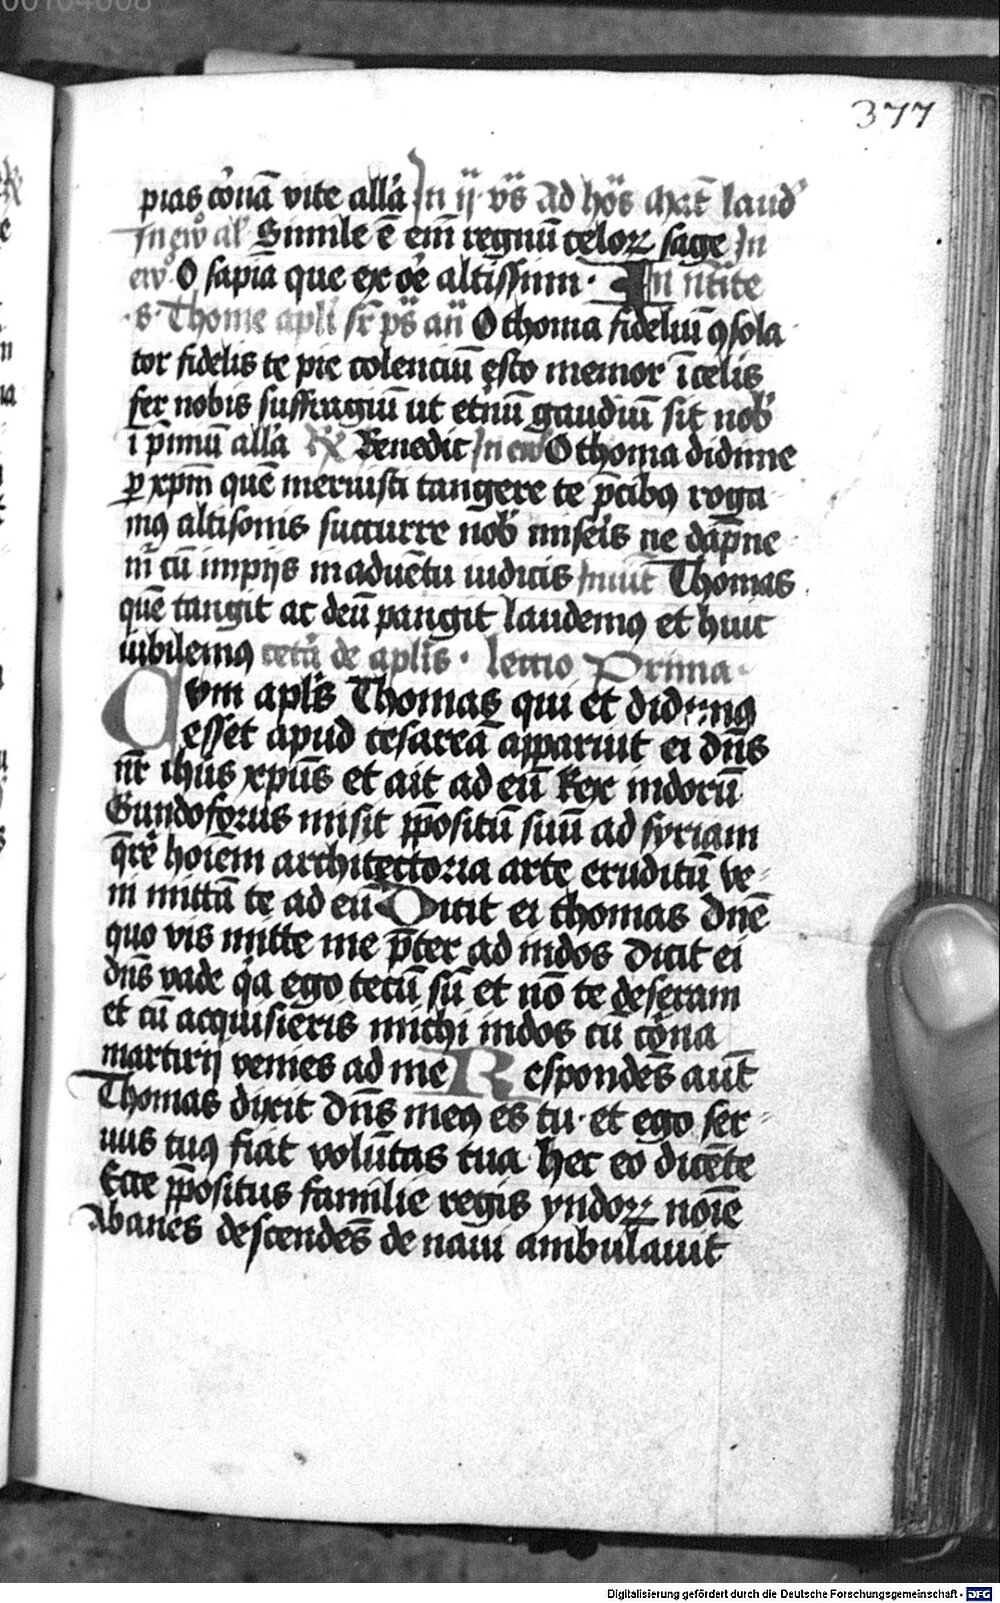 00104008
377
pias cōnā vite allā In ij vs̄ ad hōs mat̄ laud
In ew̄ al Simile ē em̄ regnū celoꝝ sage In
ew̄ O sapīa que ex oē altissimi · In nt̄ite
· s · Thome apli sr̄ ps̄ an̄ O thoma fideliū ꝯsola
tor fidelis te pie colenciū esto memor ī celis
fer nobis suffragiū ut et̄nū gaudiū sit nob̄
ī p̄miū allā ꝶ Benedic In ew̄ O thoma didime
ꝑ xpm̄ quē meruisti tangere te p̄cibꝰ roga
mꝰ altisonis succurre nob̄ mis̄eis ne dāpne
m̄ cū impijs in aduētu iudicis Inuit̄ Thomas
quē tangit ac deū pangit laudemꝰ et huic
iubilemꝰ cetā de aplīs · lectio Prima ·
Cvm apl̄s Thomas qui et didimꝰ
esset apud cesareā apparuit ei dn̄s
nr̄ ihūs xpūs et ait ad eū Rex indorū
Gundoforus misit p̄positū suū ad syriam
q̄rē hoīem architectoria arte eruditū ve
ni mittā te ad eū Dicit ei thomas dnē
quo vis mitte me p̄ter ad indos Dicit ei
dn̄s vade q̄a ego tecū sū et nō te deseram
et cū acquisieris michi indos cū cōna
martirij venies ad me Respondēs aut̄
Thomas dixit dn̄s meꝰ es tu · et ego ser
uus tuꝰ fiat volūtas tua hec eo dicēte
Ecce p̄positus familie regis yndoꝝ noīe
Abanes descendēs de naui ambulauit
Digitalisierung gefördert durch die Deutsche Forschungsgemeinschaft - DFG